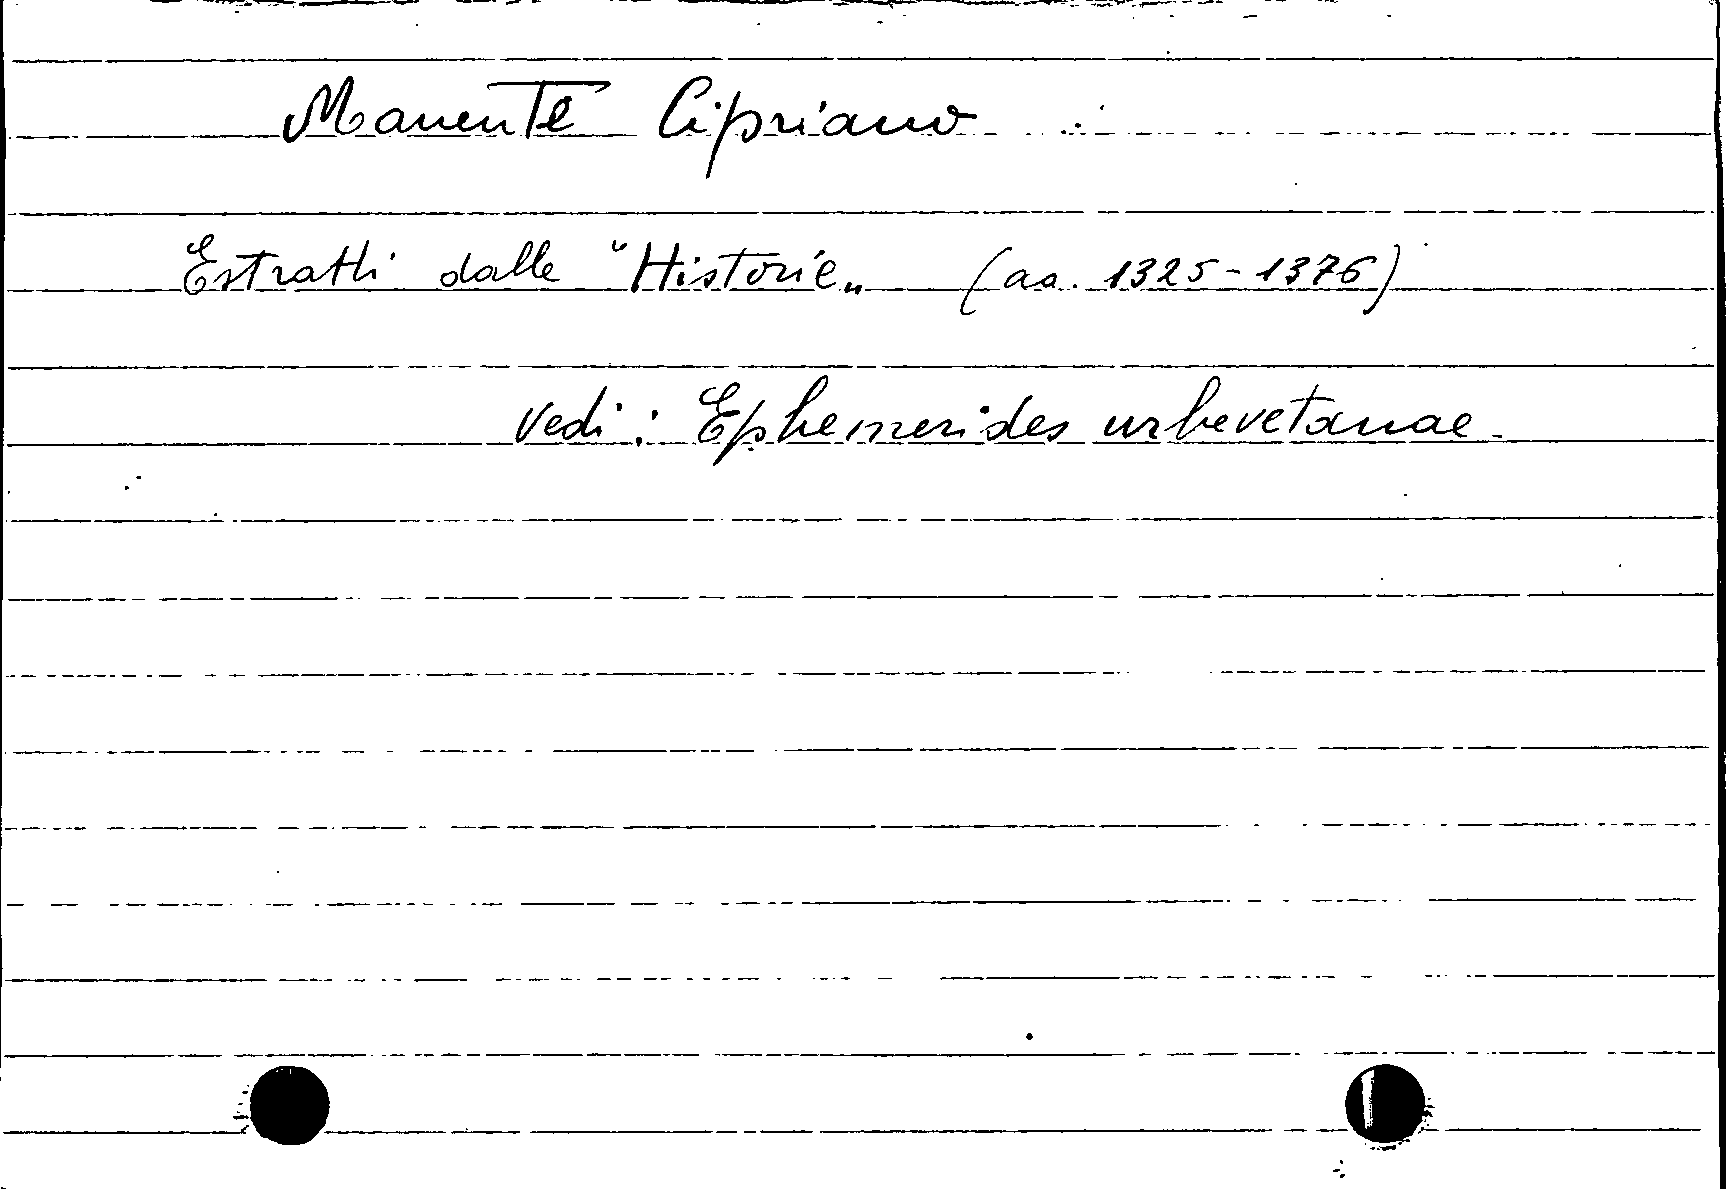 Manente Cipriano
Estratti dalle "Historie„ (aa. 1325-1376)
Vedi: Ephemerides urbevetanae